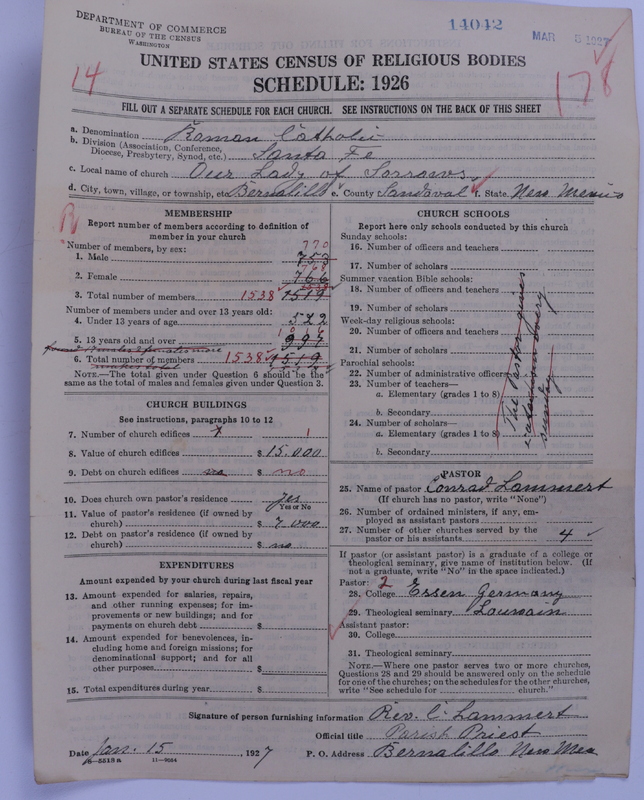 DEPARTMENT OF COMMERCE
BUREAU OF THE CENSUS
WASHINGTON
14042
MAR 5 1927
14
178
UNITED STATES CENSUS OF RELIGIOUS BODIES
SCHEDULE: 1926
FILL OUT A SEPARATE SCHEDULE FOR EACH CHURCH. SEE INSTRUCTIONS ON THE BACK OF THIS SHEET
a. Denomination Roman Catholic
b. Division (Association, Conference, Diocese, Presbytery, Synod, etc.) Santa Fe
c. Local name of church Our Lady of Sorrows
d. City, town, village, or township, etc. Bernalillo e. County Sandoval f. State New Mexico
R
MEMBERSHIP
Report number of members according to definition of
member in your church
Number of members, by sex:
770
1. Male 753
768
2. Female 766
3. Total number of members 1538 1519
Number of members under and over 13 years old:
4. Under 13 years of age 522
1016
5. 13 years old and over 997
6. Total number of members 1538 1519
NOTE.—The total given under Question 6 should be the
same as the total of males and females given under Question 3.
CHURCH BUILDINGS
See instructions, paragraphs 10 to 12
7. Number of church edifices 1 1
8. Value of church edifices $ 15.000
9. Debt on church edifices no $ no
10. Does church own pastor's residence yes
Yes or No
11. Value of pastor's residence (if owned by
church) $ 7.000
12. Debt on pastor's residence (if owned by
church) $ no
EXPENDITURES
Amount expended by your church during last fiscal year
13. Amount expended for salaries, repairs,
and other running expenses; for im-
provements or new buildings; and for
payments on church debt $
14. Amount expended for benevolences, in-
cluding home and foreign missions; for
denominational support; and for all
other purposes $
15. Total expenditures during year $
CHURCH SCHOOLS
Report here only schools conducted by this church
Sunday schools:
16. Number of officers and teachers
17. Number of scholars
Summer vacation Bible schools:
18. Number of officers and teachers
19. Number of scholars
Week-day religious schools:
20. Number of officers and teachers
21. Number of scholars
Parochial schools:
22. Number of administrative officers
23. Number of teachers—
a. Elementary (grades 1 to 8)
b. Secondary
24. Number of scholars—
a. Elementary (grades 1 to 8)
b. Secondary
The Pastor gives
catechism every
sunday
PASTOR
25. Name of pastor Conrad Lammert
(If church has no pastor, write "None")
26. Number of ordained ministers, if any, em-
ployed as assistant pastors
27. Number of other churches served by the
pastor or his assistants 4
If pastor (or assistant pastor) is a graduate of a college or
theological seminary, give name of institution below. (If
not a graduate, write "No" in the space indicated.)
Pastor: 2
28. College Essen Germany
29. Theological seminary Louvain
Assistant pastor:
30. College
31. Theological seminary
NOTE.—Where one pastor serves two or more churches,
Questions 28 and 29 should be answered only on the schedule
for one of the churches; on the schedules for the other churches,
write "See schedule for church."
Signature of person furnishing information Rev. C. Lammert
Official title Parish Priest
Date Jan. 15, 1927 P. O. Address Bernalillo New Mex
8-5518a 11-9054